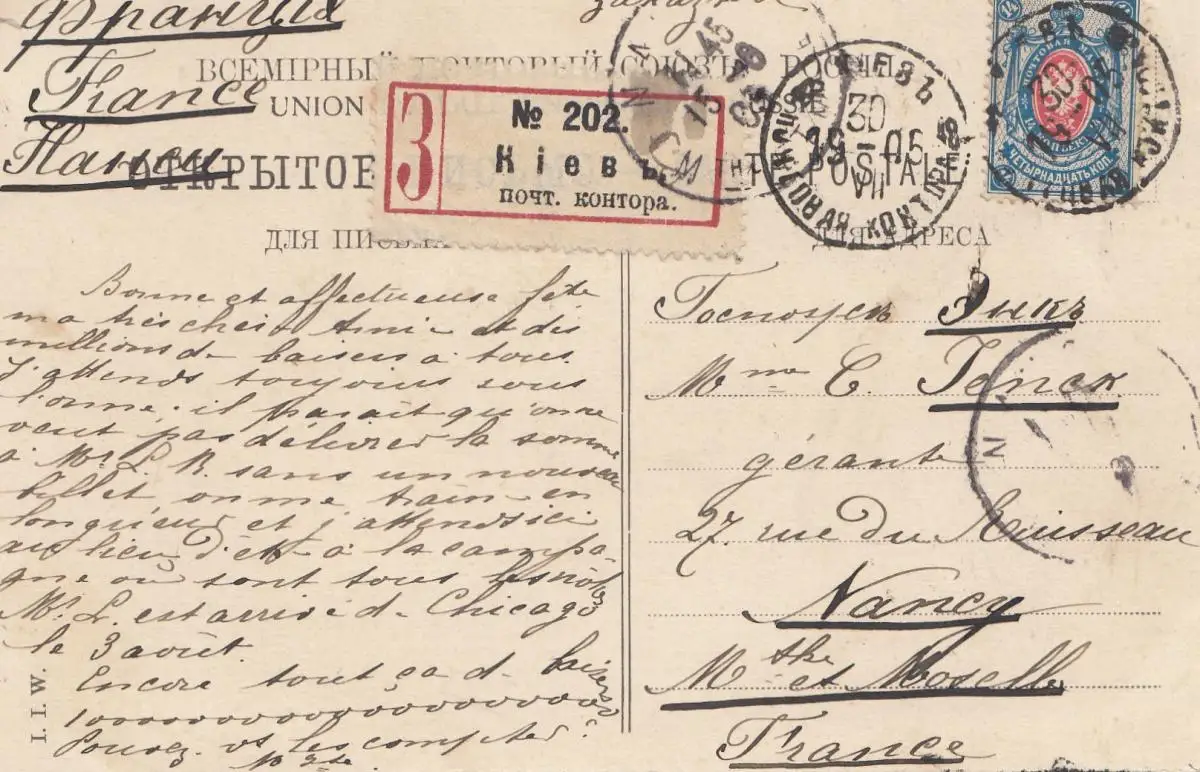 Франція
заказное
France
Нанси
ВСЕМІРНЫЙ ПОЧТОВЫЙ СОЮЗЪ. РОССІЯ.
UNION
RUSSIE
ОТКРЫТОЕ
POSTALE
З
№ 202.
Кіевъ.
почт. контора.
КІЕВЪ
30
19-05
VII
ПОЧТОВАЯ КОНТОРА
ПОЧТОВАЯ МАРКА
14
ЧЕТЫРНАДЦАТЬ КОП.
ДЛЯ ПИСЬМА
ДЛЯ АДРЕСА
Bonne et affectueuse fête
ma très chère Amie et des
millions de baisers à tous
J'attends toujours sous
l'orme. il paraît qu'on ne
veut pas délivrer la somme
à Mr. L. R. sans un nouveau
billet on me traîne en
longueur et j'attends ici
au lieu d'être à la campa-
gne où sont tous les nôtres
Mr L. est arrivé de Chicago
le 3 août.
Encore tout ça de baisers
1000000000000000000
Pouvez vs les compter?
Госпожѣ Энкъ
Mme C. Henck
gérante
27. rue du Ruisseau
Nancy
Mthe et Moselle
France
I. I. W.